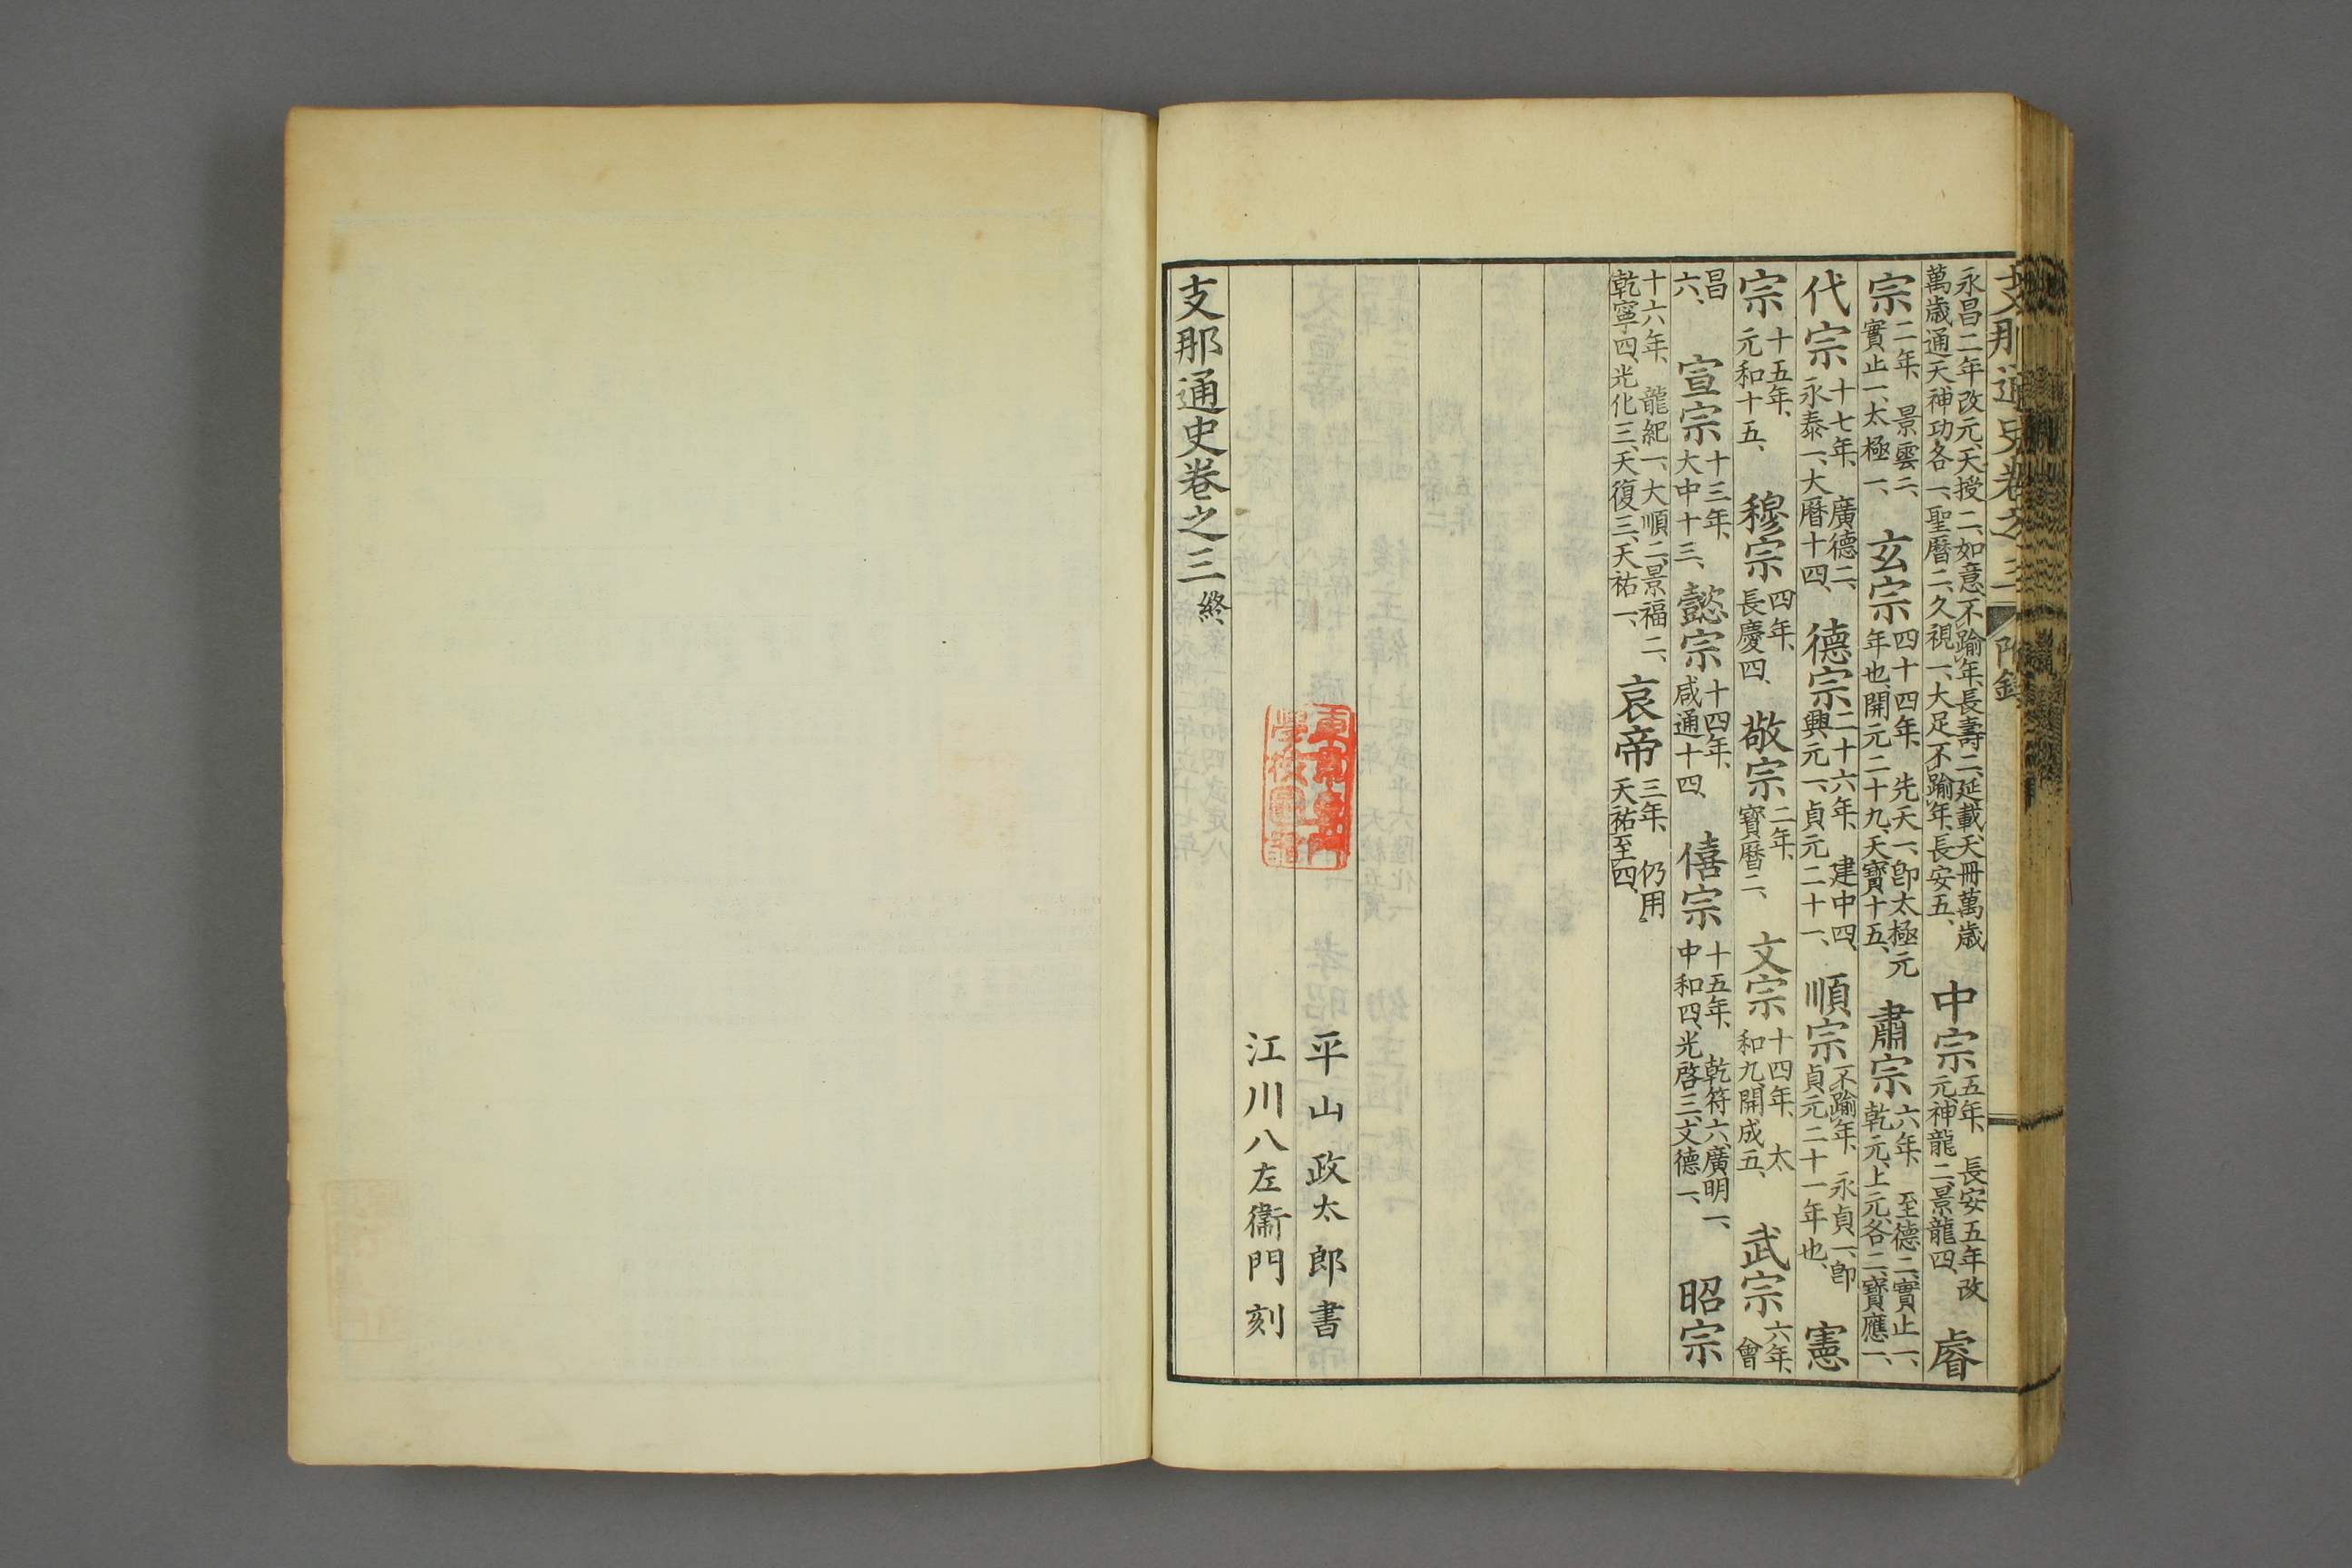 支那通史卷之三 附録
永昌二年改元、天授二、如意、不踰年、長壽二、延載、天冊萬歳
萬歳通天神功各一、聖曆二、久視一、大足不踰年、長安五、
中宗
五年、長安五年改
元、神龍二、景龍四、
睿
宗
二年、景雲二、
實止一、太極一、
玄宗
四十四年、先天一、卽太極元
年也、開元二十九、天寶十五、
肅宗
六年、至德二、實止一、
乾元、上元、各二、寶應一、
代宗
十七年、廣德二、
永泰一、大曆十四、
德宗
二十六年、建中四、
興元一、貞元二十一、
順宗
不踰年、永貞一、卽
貞元二十一年也、
憲
宗
十五年、
元和十五、
穆宗
四年、
長慶四、
敬宗
二年、
寶曆二、
文宗
十四年、太
和九、開成五、
武宗
六年、會
昌
六、
宣宗
十三年、
大中十三、
懿宗
十四年、
咸通十四、
僖宗
十五年、乾符六、廣明一、
中和四、光啓三、文德一、
昭宗
十六年、龍紀一、大順二、景福二、
乾寧四、光化三、天復三、天祐一、
哀帝
三年、仍用
天祐至四、
平山政太郎書
江川八左衞門刻
支那通史卷之三終